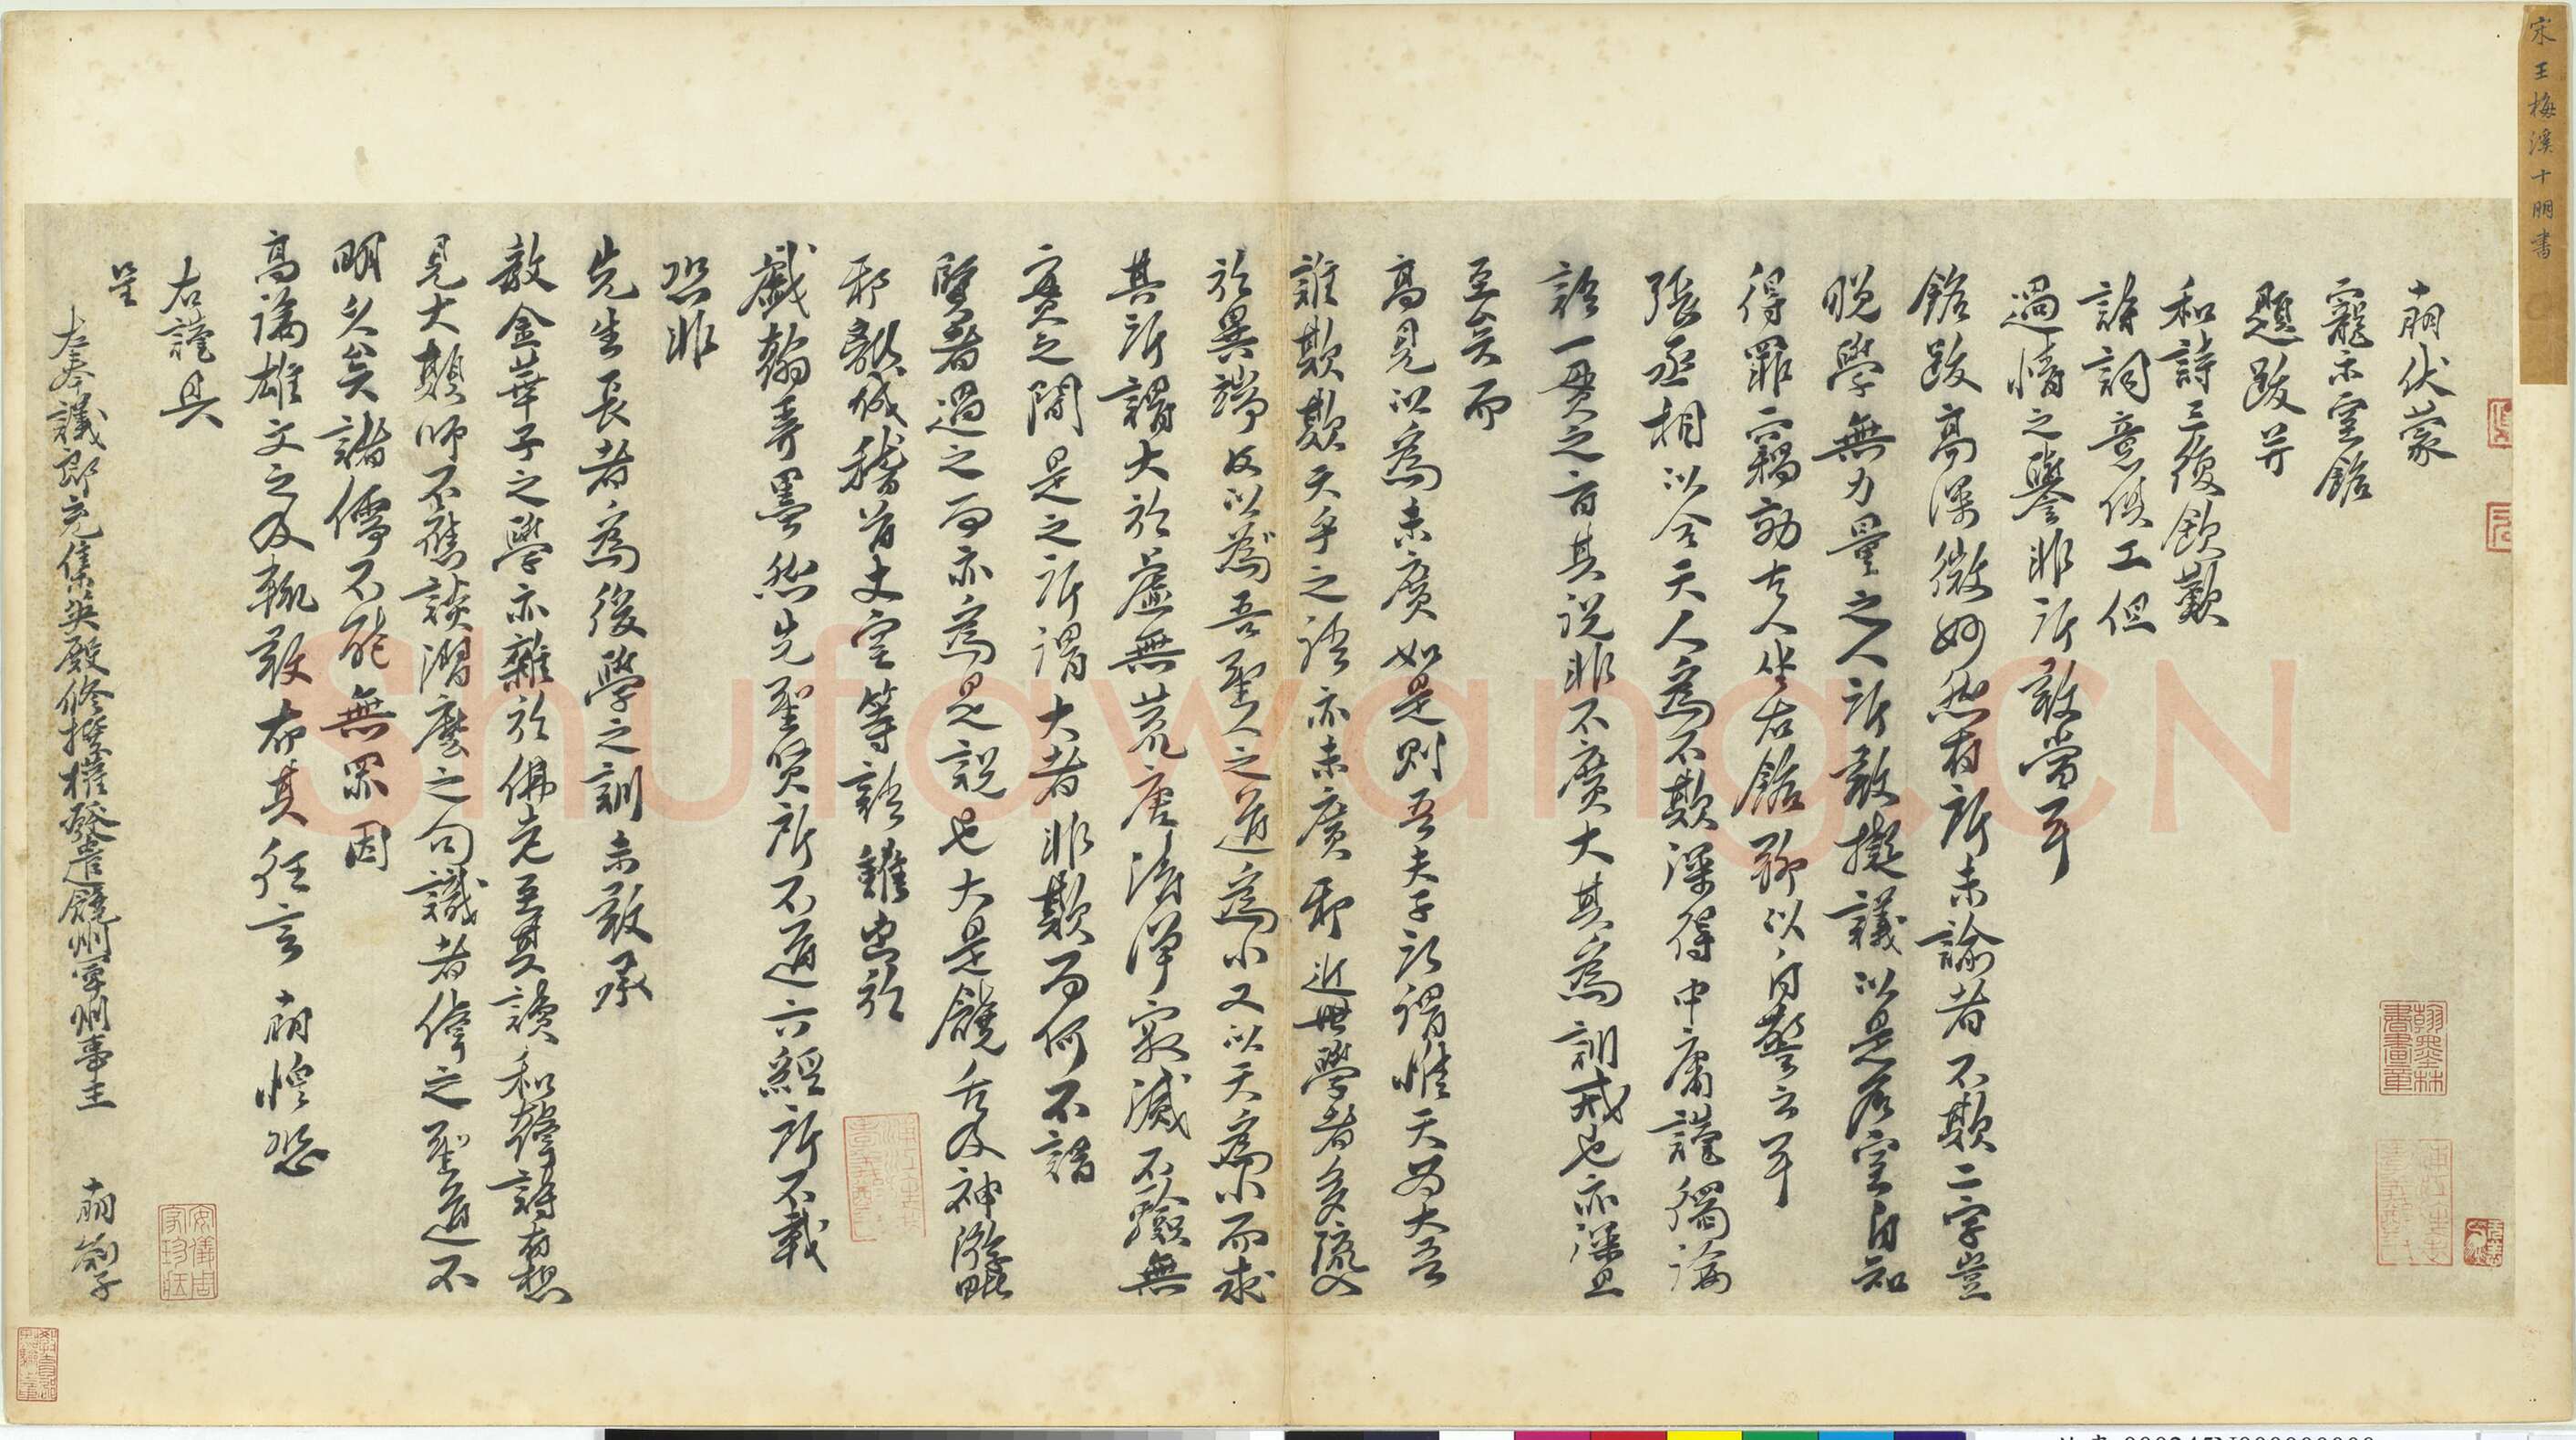 宋王梅溪十朋書
十朋伏蒙
寵示室銘
題跋并
和詩三復欽歎
詩詞意俱工但
過情之譽非所敢當耳
銘跋高深微妙然有所未諭者不欺二字豈
晚學無力量之人所敢擬議以是名室自知
得罪而竊效古人坐右銘聊以自警云耳
張丞相以合天人為不欺深得中庸謹獨論
語一貫之旨其說非不廣大其為訓戒也亦深且
至矣而
高見以為未廣如是則吾夫子所謂惟天為大吾
誰欺欺天乎之語亦未廣耶近世學者多流入
於異端反以為吾聖人之道為小又以天為小而求
其所謂大於虛無荒唐清淨寂滅不驗無
實之間是之所謂大者非欺而何不謂
賢者過之而亦為是說也大是饒舌及神游
耶輸誠稽首丈室等語雖出於
戲翰弄墨然先聖賢所不道六經所不載
恐非
先生長者為後學之訓未敢承
教金華子之學亦雜於佛老至其讀和韓詩有想
見大顛師不應談溜麼之句識者侉之聖道不
明久矣諸儒不能無罪因
高論雄文之及輒敢布其狂言 十朋惶恐
右謹具
呈
左奉議郎充集英殿修撰權發遣饒州軍州事王 十朋劄子
翰墨林書畫章
安儀周家珍藏
shufawang.CN